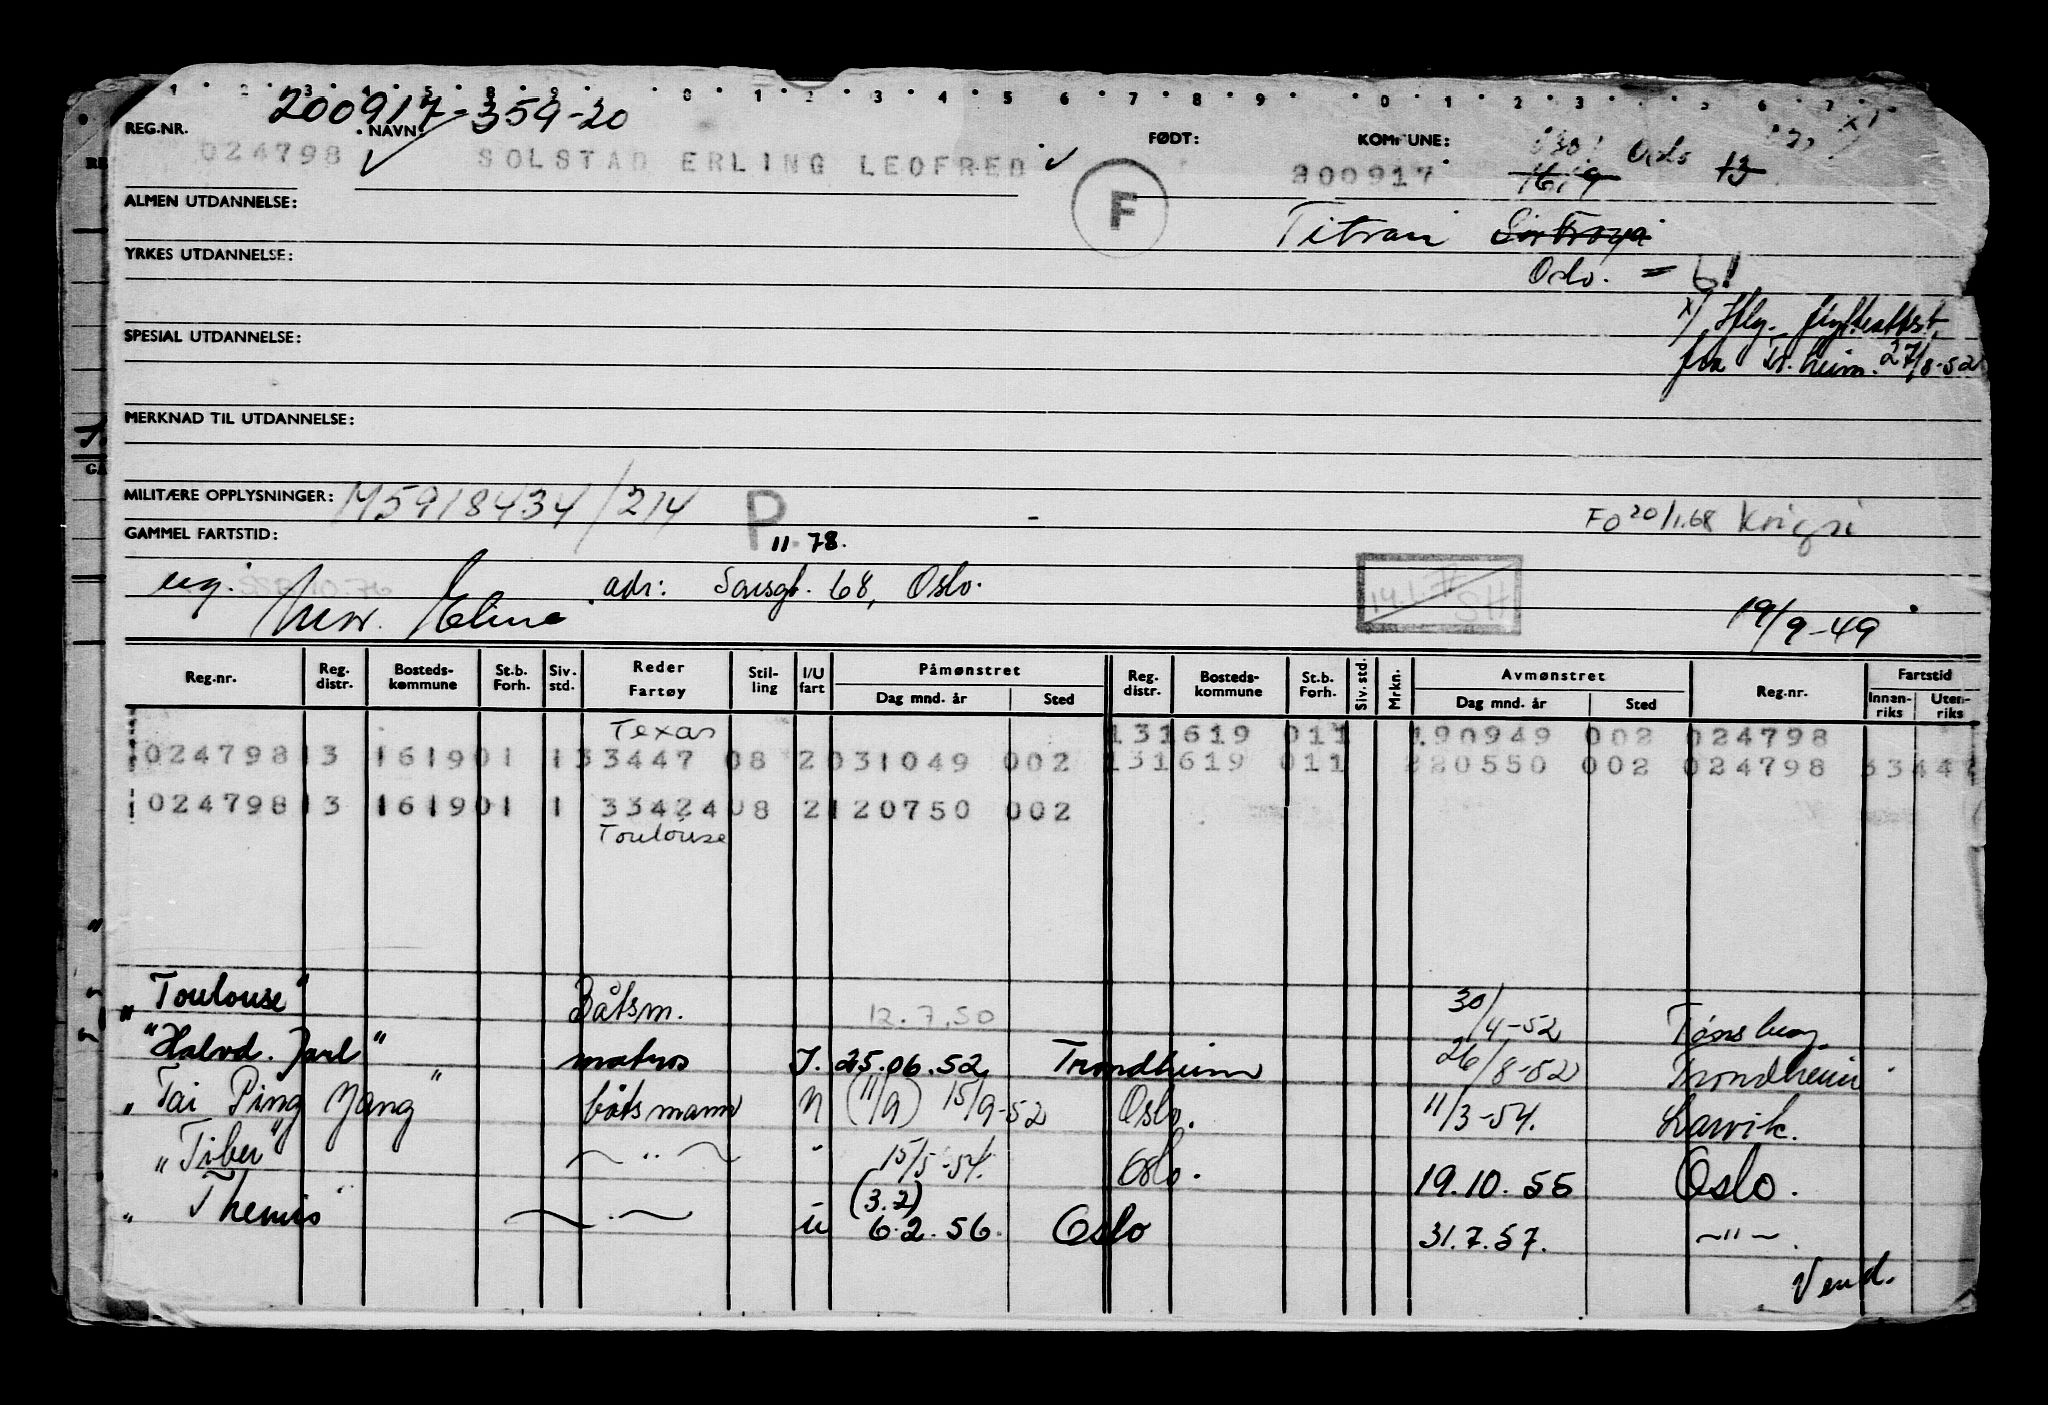 200917-359-20
REG.NR. NAVN: FØDT: KOMMUNE:
024798 SOLSTAD ERLING LEOFRED 200917 Oslo 13
F
ALMEN UTDANNELSE:
Titran Sør Frøya
YRKES UTDANNELSE:
Oslo.
x) Iflg. flytteattest
SPESIAL UTDANNELSE:
fra Tr.heim. 27/8-52
MERKNAD TIL UTDANNELSE:
MILITÆRE OPPLYSNINGER: M5918434/214 P FO 20/1.68 Krigsi
GAMMEL FARTSTID: 11.78.
ug. adr: 68, Oslo. SH
mor. Eline 19/9-49
Reg.nr. Reg. distr. Bosteds-kommune St.b. Forh. Siv. std. Reder Fartøy Stil-ling I/U fart Påmønstret Dag mnd. år Sted Reg. distr. Bosteds-kommune St.b. Forh. Siv. std. Mrkn. Avmønstret Dag mnd. år Sted Reg.nr. Fartstid Innan-riks Uten-riks
Texas 131619 011 190949 002 024798
024798 13 161901 1 33447 08 2 031049 002 131619 011 220550 002 024798 3344
024798 13 161901 1 33424 08 2 120750 002
Toulouse
" Toulouse" Båtsm. 12.7.50 30/4-52 Tønsberg.
"Halvd. Jarl" matros I. 25.06.52 Trondheim 26/8-52 Trondheim
" Tai Ping Yang " båtsmann (11/9) 15/9-52 Oslo. 11/3-54. Larvik.
" Tiber" ~ " ~ " 15/5-54. Oslo. 19.10.55 Oslo.
(3.2)
" Themis" ~ . ~ u 6.2.56. Oslo 31.7.57. ~"~.
Vend.